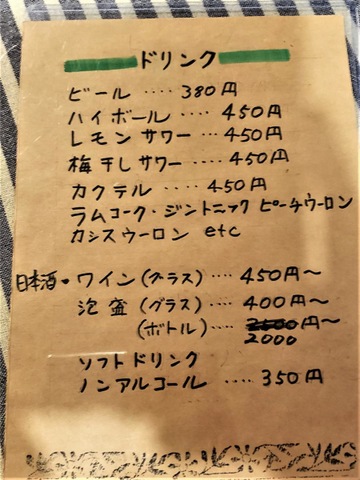 ドリンク
ビール ‥‥ 380円
ハイボール ‥‥ 450円
レモンサワー ‥‥ 450円
梅干しサワー ‥‥ 450円
カクテル ‥‥ 450円
ラムコーク・ジントニック ピーチウーロン
カシスウーロン etc
日本酒・ワイン(グラス)‥‥ 450円〜
泡盛(グラス)‥‥ 400円〜
(ボトル)‥‥ 2500円〜
2000
ソフトドリンク
ノンアルコール ‥‥ 350円